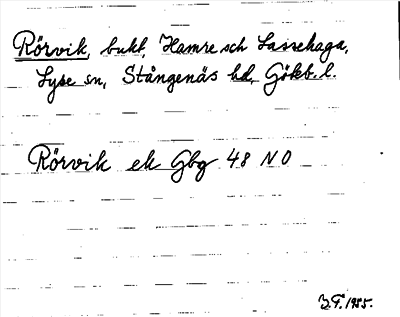 Rörvik, bukt, Hamre och Lassehaga,
Lyse sn, Stångenäs hd, Gökb. l.
Rörvik ek Gbg 48 NO
1955.